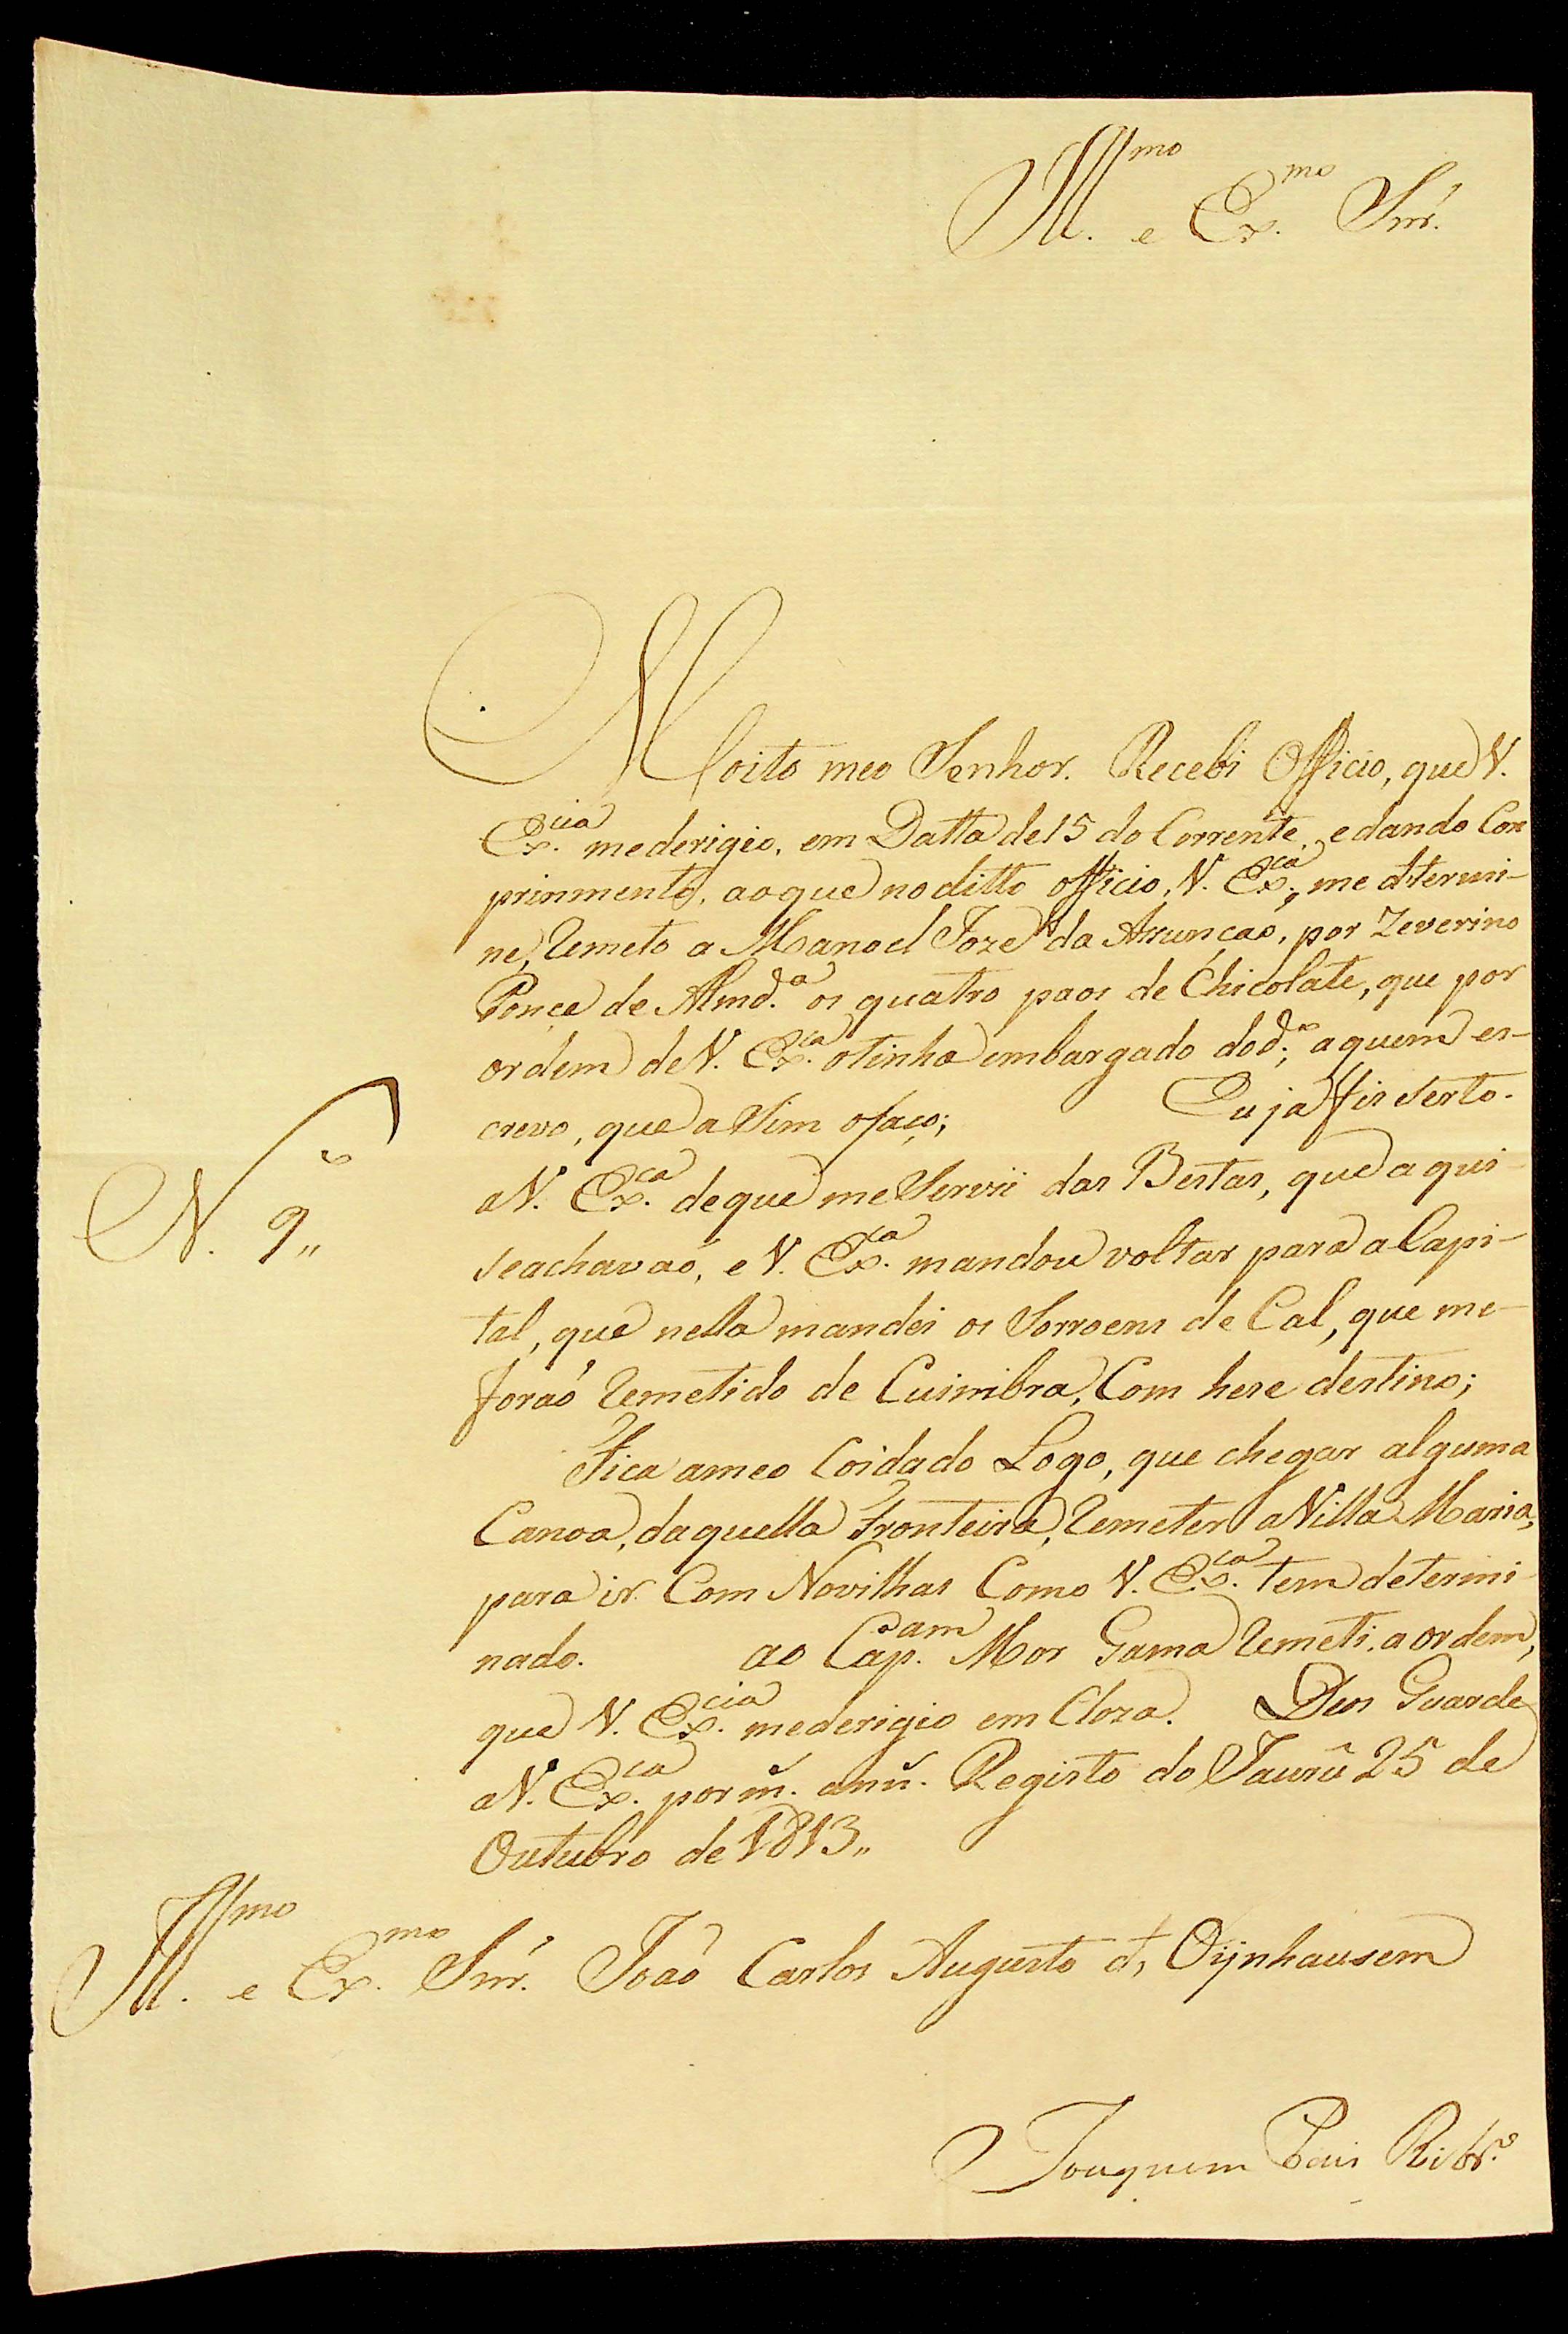 Ill.mo e Ex.mo Snr.
Moito meo Senhor. Recebi Officio, que V.
Ex.cia mederigio, em Datta de 15 do Corrente, edando Con
prinmento, aoque noditto officio, V. Ex.ca, me ditermi-
ne, Remeto a Manoel Joze da Assuncaó, por Zeverino
Ponce de Almd.a os quatro paos de Chicolate, que por
ordem de V. Ex.ca otinha embargado dod.o; aquem es-
crevo, que a Sim ofaço; Eu ja fis Serto.
a V. Ex.ca deque me Servii das Bestas, que a qui
seachavaó, e V. Ex.ca mandou voltar para a Capi-
tal, que nella mandei os Sorroens de Cal, que me
foraó Remetido de Cuimbra, Com hese destino;
N. 9,,
Fica ameo Coidado Logo, que chegar alguma
Canoa, daquella Fronteira, Remeter a Villa Maria,
para ir Com Novilhas Como V. Ex.ca tem determi-
nado. ao Cap.am Mor Gama Remeti. a ordem,
que V. Ex.cia mederigio em Cloza. Deos Guarde
a V. Ex.ca por m. ann. Registo do Jaurû 25 de
Outubro de 1813,,
Ill.mo e Ex.mo Snr. Joaó Carlos Augusto d, Oijnhausem
Joaquim Pais Ribr.o